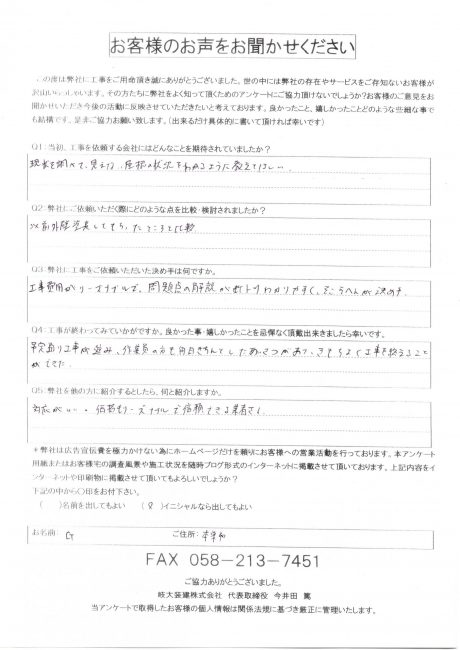 お客様のお声をお聞かせください
この度は弊社に工事をご用命頂き誠にありがとうございました。世の中には弊社の存在やサービスをご存知ないお客様が
沢山いらっしゃいます。その方たちに弊社をよく知って頂くためのアンケートにご協力頂けないでしょうか?お客様のご意見をお
聞かせいただき今後の活動に反映させていただきたいと考えております。良かったこと、嬉しかったことどのような些細な事で
も結構です、是非ご協力お願い致します。(出来るだけ具体的に書いて頂ければ幸いです)
Q1:当初、工事を依頼する会社にはどんなことを期待されていましたか?
現状を調べて、見えない屋根の状況をわかるように教えてほしい。
Q2:弊社にご依頼いただく際にどのような点を比較・検討されましたか?
以前外壁塗装してもらったところと比較
Q3:弊社に工事をご依頼いただいた決め手は何ですか。
工事費用がリーズナブルで、問題点の解説が
わかりやすく、そこらへんが決め手。
Q4:工事が終わってみていかがですか。良かった事・嬉しかったことを忌憚なく頂戴出来ましたら幸いです。
予定通り工事が進み、作業員の方も毎日きちんとしたあいさつがあり、きもちよく工事を終えること
ができた。
Q5:弊社を他の方に紹介するとしたら、何と紹介しますか。
対応がいい。価格もリーズナブルで信頼できる業者さん
+弊社は広告宣伝費を極力かけない為にホームページだけを頼りにお客様への営業活動を行っております。本アンケート
用紙またはお客様宅の調査風景や施工状況を随時ブログ形式のインターネットに掲載させて頂いております。上記内容をイ
ンターネットや印刷物に掲載させて頂いてもよろしいでしょうか?
下記の中から〇印をお付下さい。
( )名前を出してもよい (8)イニシャルなら出してもよい
お名前: G ご住所:
FAX 058-213-7451
ご協力ありがとうございました。
岐大装建株式会社 代表取締役 今井田 篤
当アンケートで取得したお客様の個人情報は関係法規に基づき厳正に管理いたします。